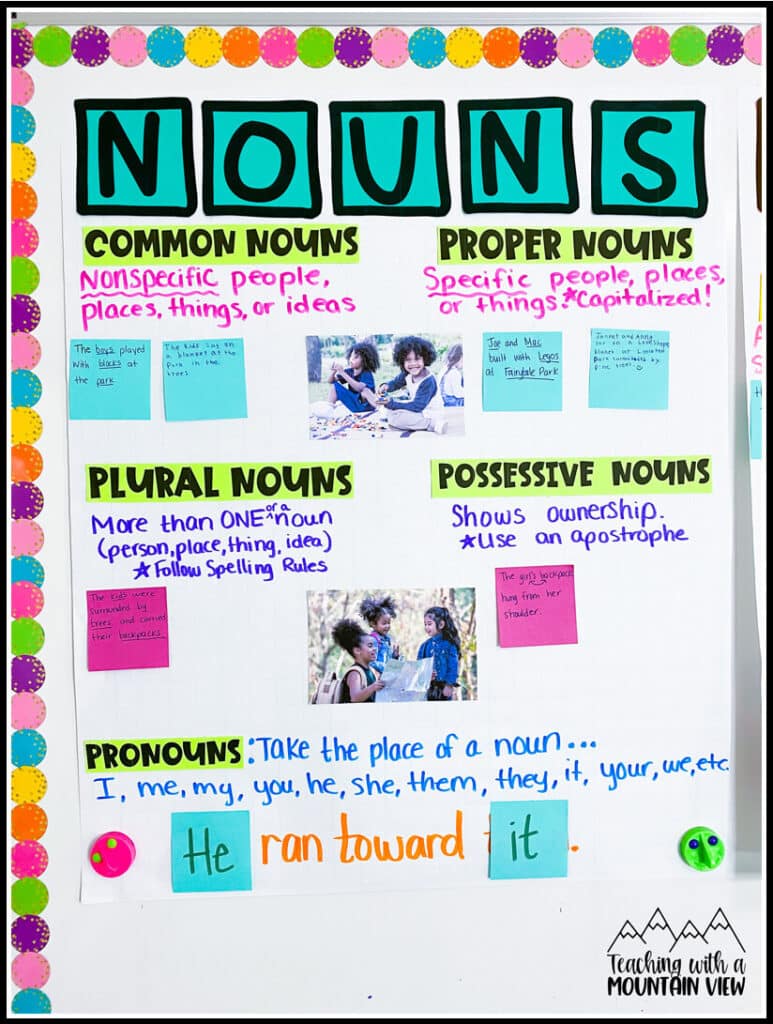 NOUNS
COMMON NOUNS
Nonspecific people,
places, things, or ideas
PROPER NOUNS
Specific people, places,
or things. *Capitalized!
The boys played
with blocks at
the park
The kids
on
a blanket at the
Park in the
trees
Joe and Mac
built with Legos
at Fairydale Park
PLURAL NOUNS
More than ONE of a noun
(person, place, thing, idea)
* Follow Spelling Rules
POSSESSIVE NOUNS
Shows ownership.
*Use an apostrophe
The kids were
surrounded by
trees and carried
their backpacks.
The girl's backpack
hung from her
shoulder.
PRONOUNS: Take the place of a noun...
I, me, my, you, he, she, them, they, it, your, we, etc.
He ran toward it.
Teaching with a
MOUNTAIN VIEW